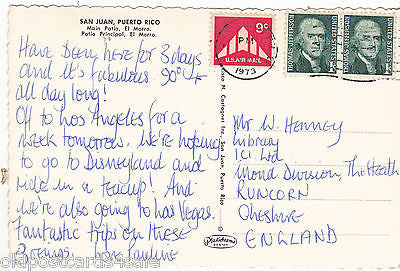 SAN JUAN, PUERTO RICO
Main Patio, El Morro.
Patio Principal, El Morro.
Have been here for 3 days
and it's fabulous. 90° +
all day long!
Off to Los Angeles for a
week tomorrow. We're hoping
to go to Disneyland and
ride in a teacup! And
we're also going to Las Vegas.
Fantastic trips on these
Boeings. Pauline
9c
U.S. AIR MAIL
PM
1973
THOMAS JEFFERSON
UNITED STATES
THOMAS JEFFERSON
UNITED STATES
San Juan, Puerto Rico
Mr W. Henney
Library
ICI Ltd
Mond Division, The Heath
RUNCORN
Cheshire
ENGLAND
oldpostcards94sale